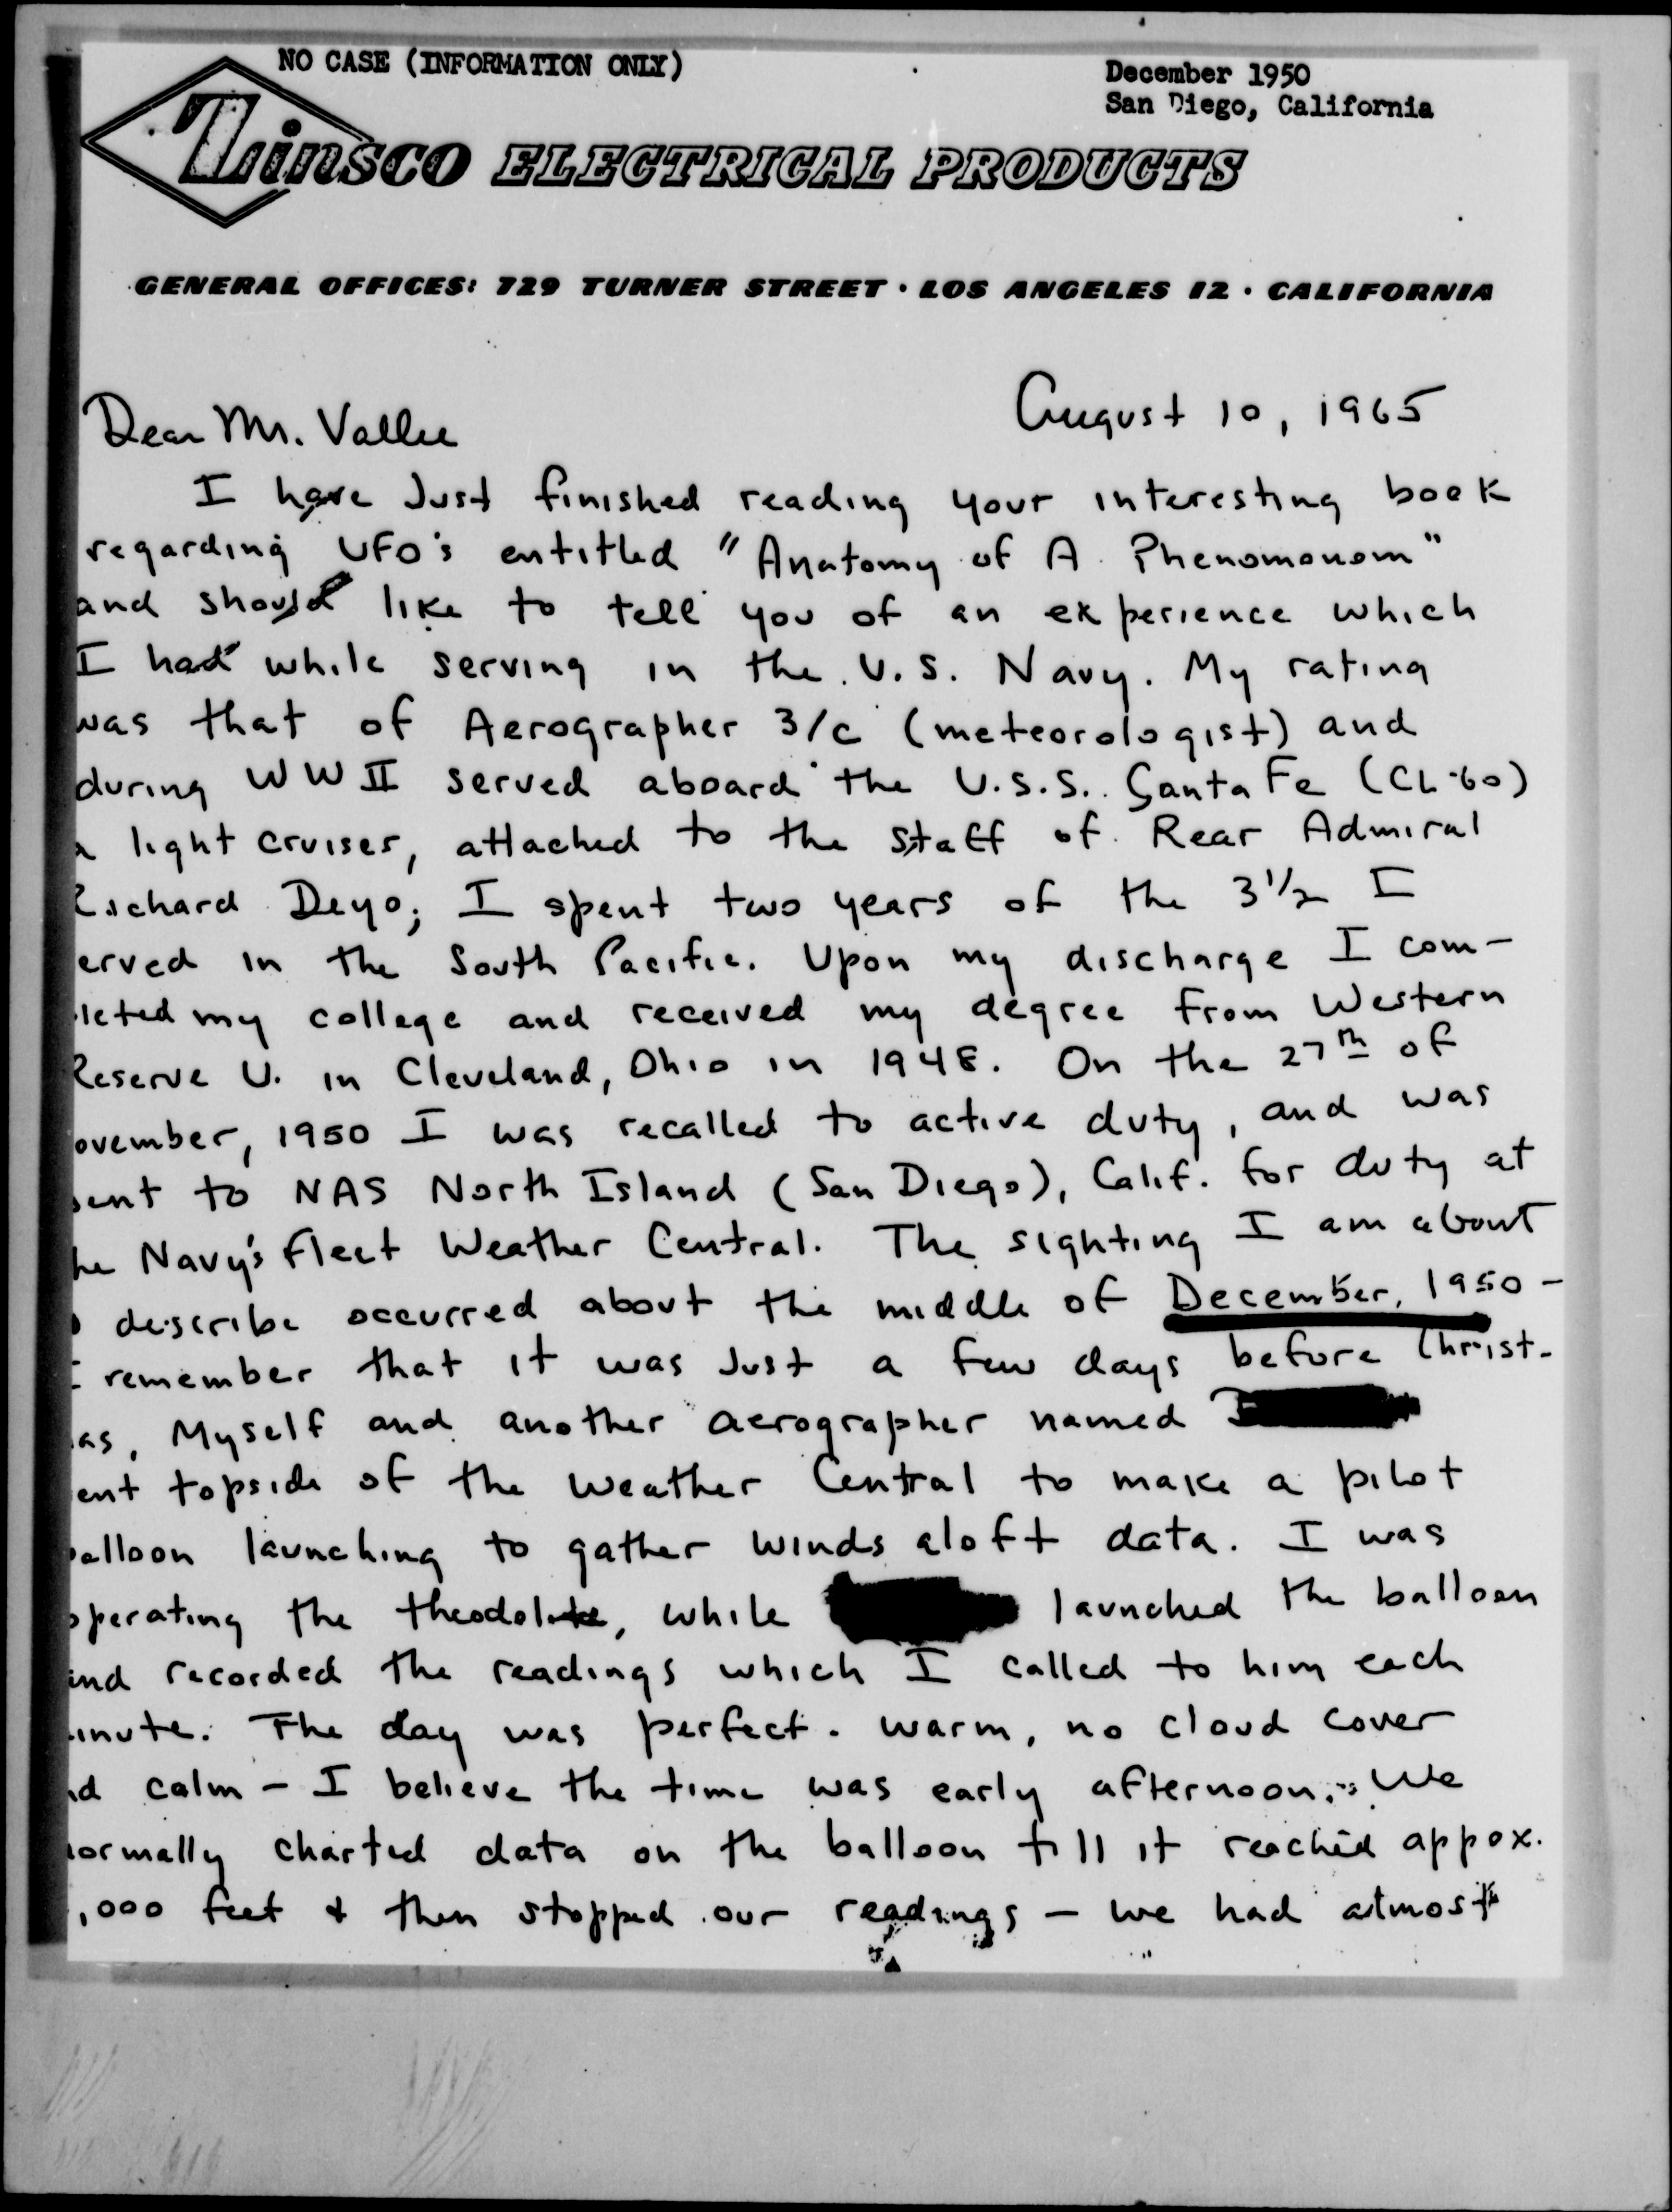 NO CASE (INFORMATION ONLY)
December 1950
San Diego, California
Zinsco ELECTRICAL PRODUCTS
GENERAL OFFICES: 729 TURNER STREET · LOS ANGELES 12 · CALIFORNIA
August 10, 1965
Dear Mr. Vallee
I have Just finished reading your interesting book
regarding UFO's entitled "Anatomy of A Phenomonom"
and should like to tell you of an experience which
I had while serving in the U.S. Navy. My rating
was that of Aerographer 3/c (meteorologist) and
during WWII served aboard the U.S.S. Santa Fe (CL-60)
a light cruiser, attached to the staff of Rear Admiral
Richard Deyo; I spent two years of the 3 1/2 I
erved in the South Pacific. Upon my discharge I com-
leted my college and received my degree from Western
Reserve U. in Cleveland, Ohio in 1948. On the 27th of
ovember, 1950 I was recalled to active duty, and was
sent to NAS North Island (San Diego), Calif. for duty at
he Navy's Fleet Weather Central. The sighting I am about
o describe occurred about the middle of December, 1950 -
I remember that it was Just a few days before Christ-
as, Myself and another aerographer named
ent topside of the Weather Central to make a pilot
balloon launching to gather winds aloft data. I was
operating the theodolite, while launched the balloon
and recorded the readings which I called to him each
inute. The day was perfect - warm, no cloud cover
nd calm - I believe the time was early afternoon. We
normally charted data on the balloon till it reached appox.
,000 feet & then stopped our readings - we had almost